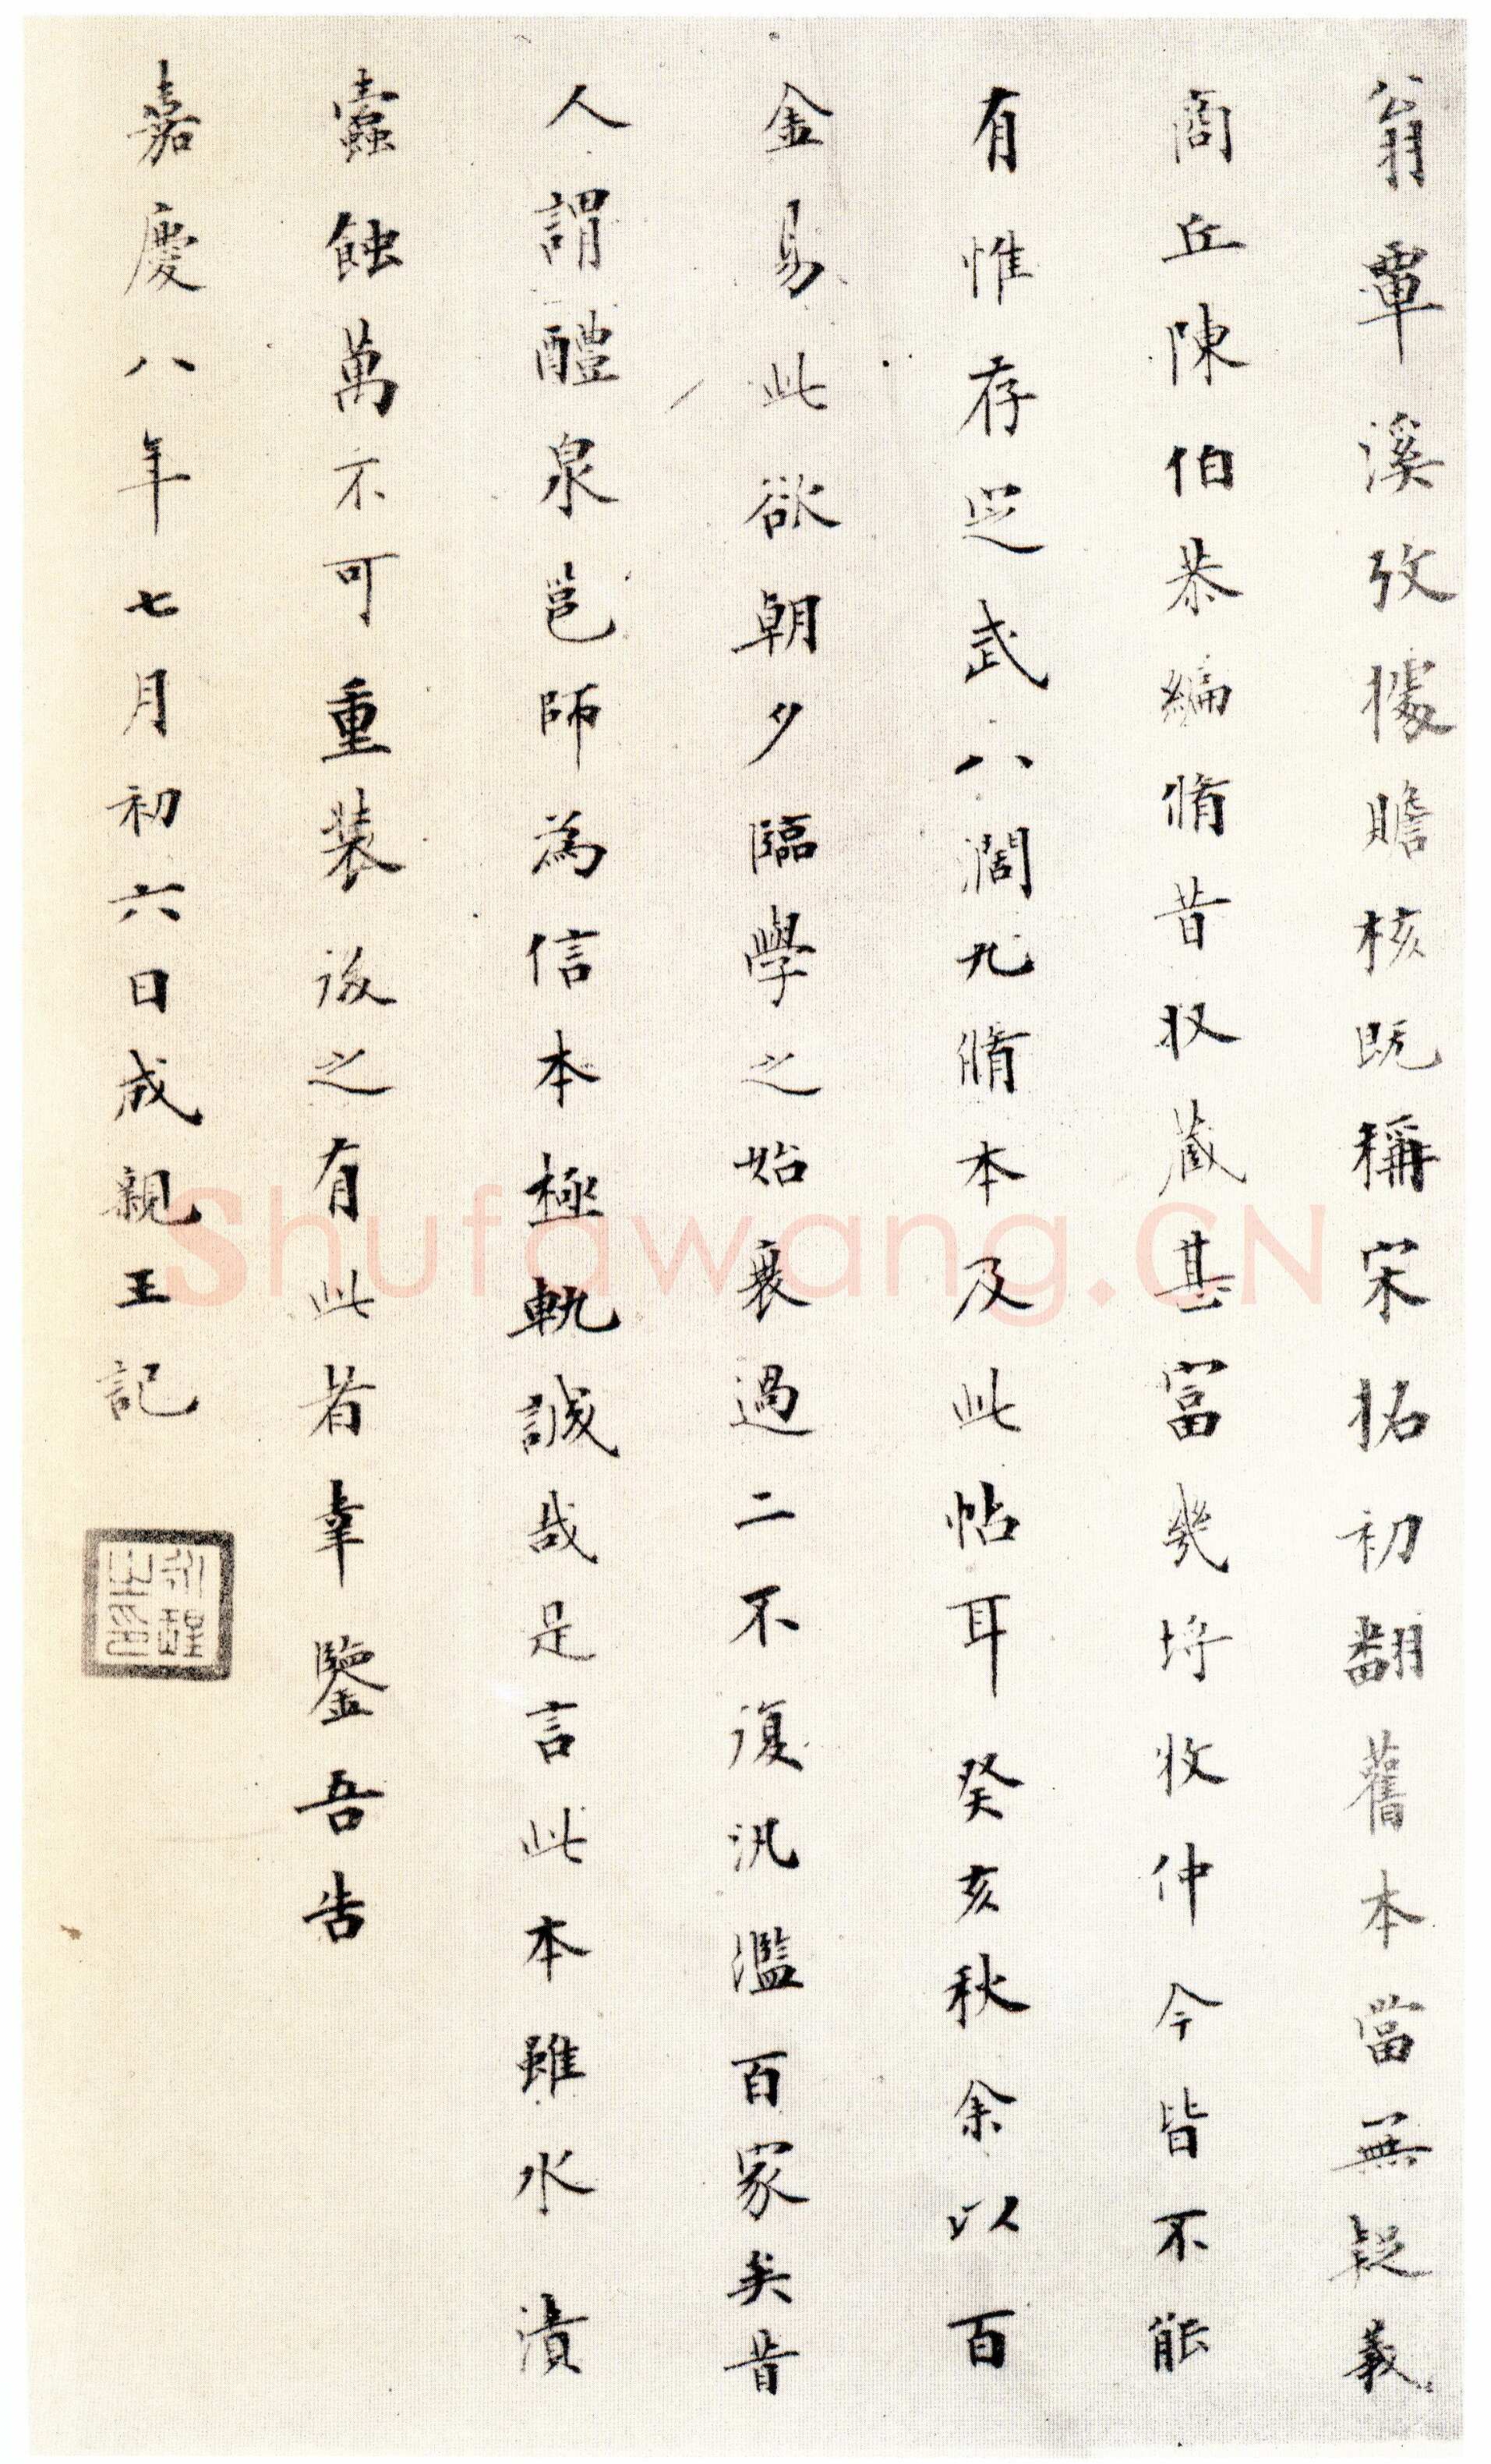 翁覃溪攷據贍核既稱宋拓初翻舊本當無疑義
商丘陳伯恭編脩昔收藏甚富幾埒牧仲今皆不能
有惟存定武八闊九脩本及此帖耳癸亥秋余以百
金易此欲朝夕臨學之始衰過二不復汎濫百家矣昔
人謂醴泉邕師為信本極軌誠哉是言此本雖水漬
蠹蝕萬不可重裝後之有此者幸鑒吾告
嘉慶八年七月初六日成親王記
永瑆之印
Shufawang.CN